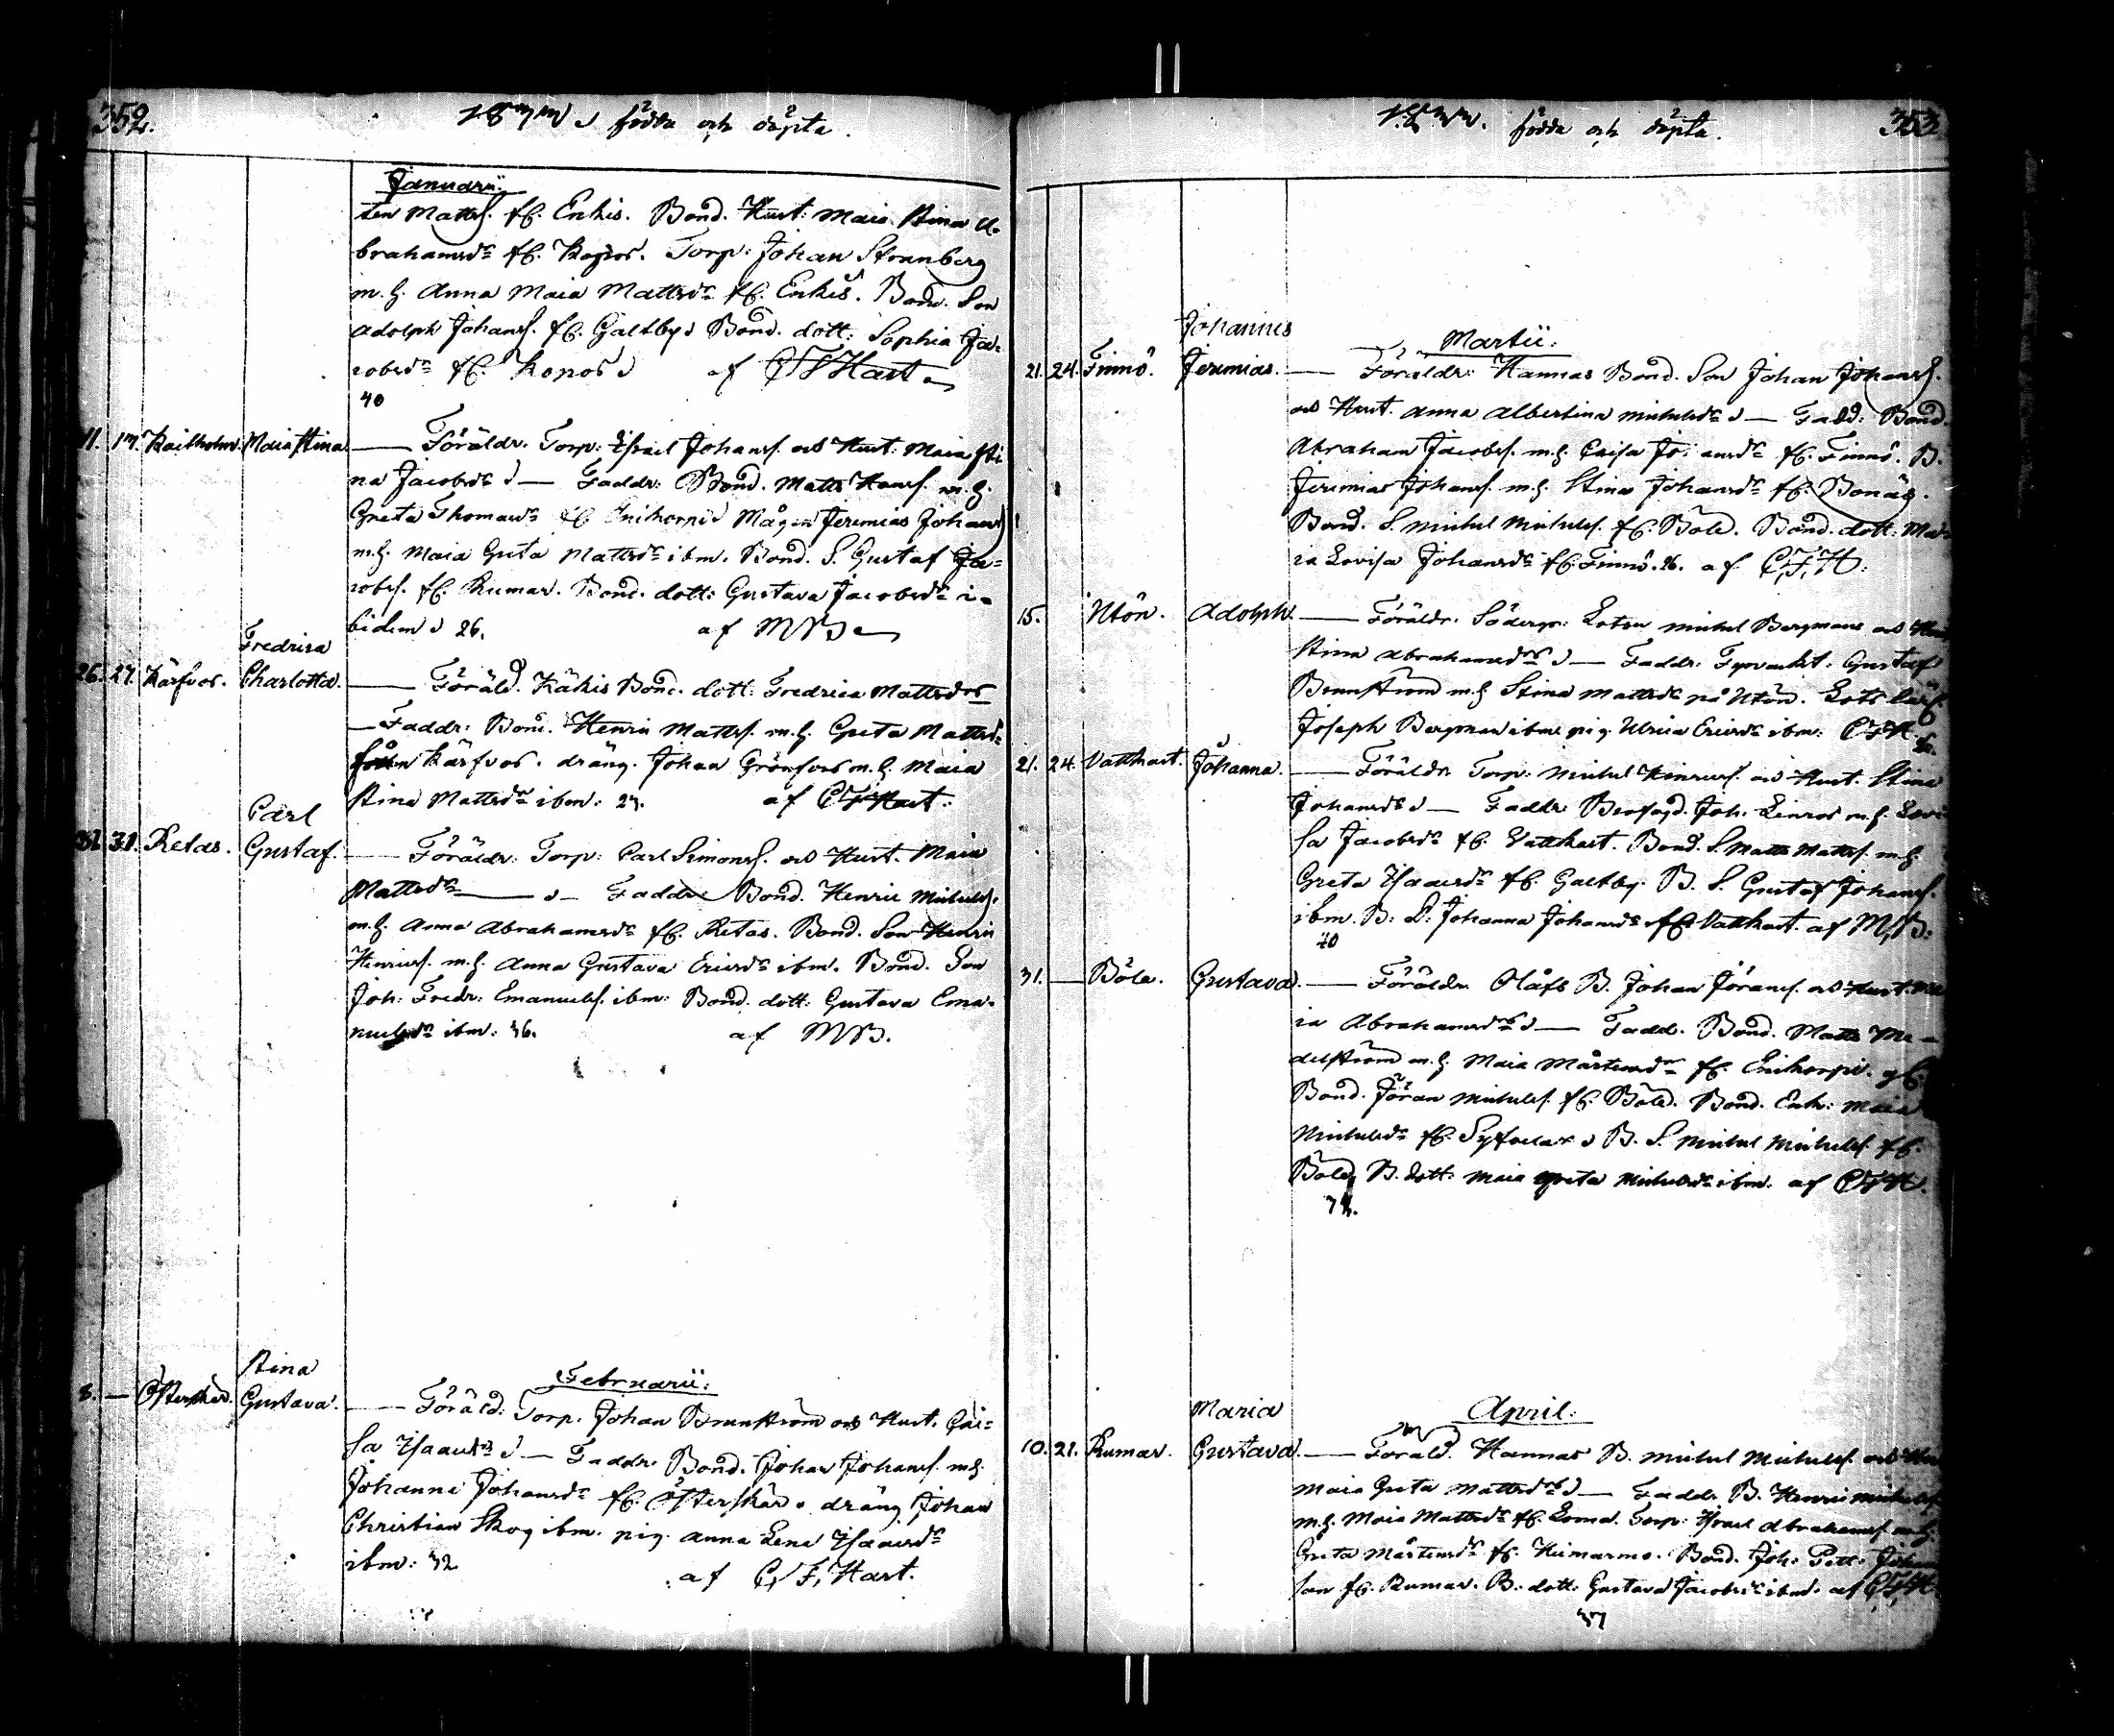 352.
födda och döpta.
Januarii
ten Mattss. fr. Enkis. Bond. Hust: Maia Stina A-
brahamsdr fr. Torp: Johan Strannberg
m.h. Anna Maia Mattsdr fr. Enkis. Bond. Son
Adolph Johanss. fr. Galtby Bond. dott: Sophia Ja-
cobsdr fr. Konos af CF Hart
40
11. 17. Kaitholm. Maia Stina — Föräldr. Torp: Israel Johanss. och Hust: Maia Sti
na Jacobsdr — Faddr: Bond. Matts Hanss. m.h.
Greta Thomasdr fr. Mågen Jeremias Johans
m.h. Maia Greta Mattsdr ibm. Bond. S. Gustaf Ja-
cobss. fr. Rumar. Bond. dott: Gustava Jacobsdr i-
bidem 26. af MB
Fredrica
26. 27. Kärfvos. Charlotta. — Föräld. Käkis Bond. dott: Fredrica Mattsdos
— Faddr: Bond. Henric Mattss. m.h. Greta Mattsd
från Kärfvos. dräng. Johan Grönfors m.h. Maia
Stina Mattsdr ibm: 27. af CF Hart.
Carl
31. 31. Retas. Gustaf. — Föräldr: Torp: Carl Simonss. och Hust. Maia
Mattsdr — Faddr: Bond. Henric Michelss.
m.h. Anna Abrahamsdr fr. Retas. Bond. Son Henric
Henricss. m.h. Anna Gustava Ericsdr ibm. Bond. Son
Joh: Fredr: Emanuelss. ibm: Bond. dott: Gustava Ema-
nuelsdr ibm: 36. af MB.
Februarii:
Stina
3. — Österskär. Gustava. — Föräld: Torp. Johan Brunström och Hust. Cai-
sa Isaacsdr — Faddr. Bond. Johan Johanss. m.h.
Johanna Johansdr fr. Österskär. dräng Johan
Christian Skog ibm. pig. Anna Lena Isaacsdr
ibm: 32 af C, F, Hart.
353
födda och döpta.
Martii:
Johannes
21. 24. Finnö. Jeremias. — Föräldr: Hannas Bond. Son Johan Johanss.
och Hust. Anna Albertina Michelsdr — Fadd: Bond.
Abraham Jacobss. m.h. Caisa fr. Finnö. B.
Jeremias Johanss. m.h. Stina Johansdr fr. Bonäs.
Bond. S. Michel Michelss. fr. Böle. Bond. dott: Ma-
ria Lovisa Johansdr fr. Finnö. 26. af C, F, H:
15. Utön. Adolph. — Föräldr. Lotsen Michel Bergman och
Stina Abrahamsdr — Faddr: Gustaf
Brunström m.h. Stina Mattsdr på Utön. Lots
Joseph Bergman ibm pig. Ulrica Ericsdr ibm: CFH
21. 24. Vattkast. Johanna. — Föräldr Torp: Michel Henricss. och Hust. Stina
Johansdr — Faddr Joh. Linros m.h. Lovi
sa Jacobsdr fr. Vattkast. Bond. S. Matts Mattss. m.h.
Greta Isaacsdr fr. Galtby. B. S. Gustaf Johanss.
ibm. B: D: Johanna Johansdr fr. Vattkast. af M, B:
40
31. — Böle. Gustava. — Föräldr. Olåfs B. Johan Göranss. och Hust. Ma
ia Abrahamsdr — Fadd. Bond. Matts Me-
delström m.h. Maia Mårtensdr fr.
Bond. Göran Michelss. fr. Böle. Bond. Enk: Maia
Michelsdr fr. B. S. Michel Michelss. fr.
Böle, B. dott: Maia Greta Michelsdr ibm. af CFH.
April.
Maria
10. 21. Rumar. Gustava. — Föräld. Hannas B. Michel Michelss. och
Maia Greta Mattsdr — Faddr. B. Henric Michelss
m.h. Maia Mattsdr fr. Torp: Israel Abrahamss. m.h.
Greta Mårtensdr fr. Heimarmo. Bond. Joh: Pett: Johan
son fr. Rumar. B: dott: Gustava Jacobsdr ibm: af CFH
37